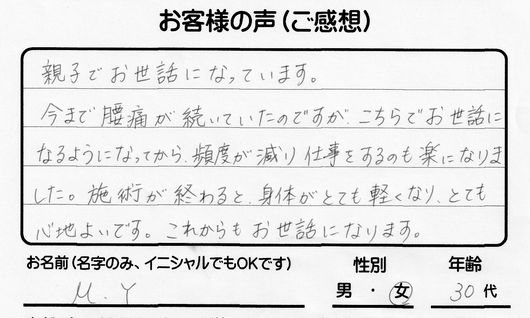 お客様の声(ご感想)
親子でお世話になっています。
今まで腰痛が続いていたのですが、こちらでお世話に
なるようになってから、頻度が減り仕事をするのも楽になりま
した。施術が終わると、身体がとても軽くなり、とても
心地よいです。これからもお世話になります。
お名前(名字のみ、イニシャルでもOKです) 性別 年齢
M.Y 男・女 30代